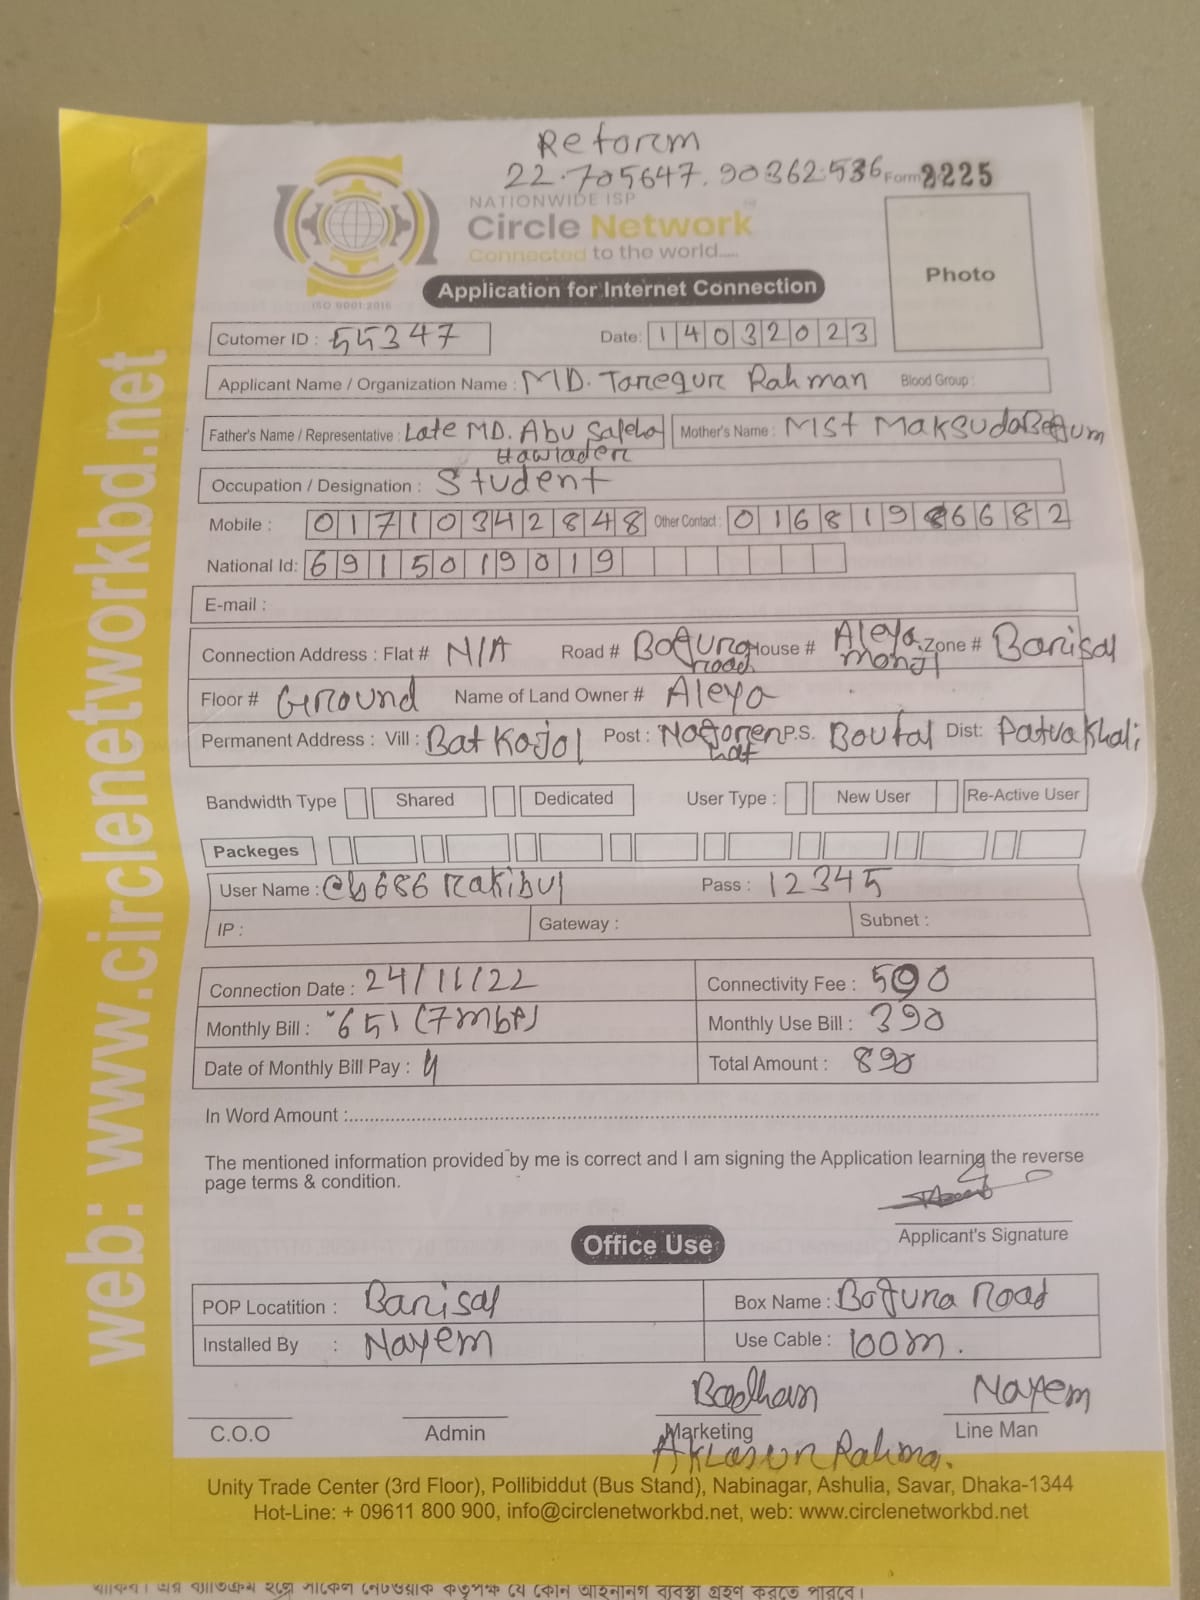 Reform
22.705647.90362536 Form 2225
NATIONWIDE ISP
Circle Network
Connected to the world.....
ISO 9001:2015
Application for Internet Connection
Photo
Cutomer ID : 55347 Date: 14032023
Applicant Name / Organization Name : MD. Tarequr Rahman Blood Group :
Father's Name / Representative : Late MD. Abu Saleha Hawlader Mother's Name : Mst Maksuda Begum
Occupation / Designation : Student
Mobile : 01710342848 Other Contact : 01681986682
National Id: 6915019019
E-mail :
Connection Address : Flat # N/A Road # Bogura road House # Aleya monjil Zone # Barisal
Floor # Ground Name of Land Owner # Aleya
Permanent Address : Vill : Bat Kajol Post : Nagorer hat P.S. Boufal Dist: Patuakhali
Bandwidth Type Shared Dedicated User Type : New User Re-Active User
Packeges
User Name : Rakibul Pass : 12345
IP : Gateway : Subnet :
Connection Date : 24/11/22 Connectivity Fee : 500
Monthly Bill : 651 (7mbps) Monthly Use Bill : 390
Date of Monthly Bill Pay : 4 Total Amount : 890
In Word Amount :
The mentioned information provided by me is correct and I am signing the Application learning the reverse
page terms & condition.
Applicant's Signature
Office Use
POP Locatition : Barisal Box Name : Bogura Road
Installed By : Nayem Use Cable : 100m.
Badhan Nayem
C.O.O Admin Marketing Line Man
Rahma.
Unity Trade Center (3rd Floor), Pollibiddut (Bus Stand), Nabinagar, Ashulia, Savar, Dhaka-1344
Hot-Line: + 09611 800 900, info@circlenetworkbd.net, web: www.circlenetworkbd.net
web: www.circlenetworkbd.net